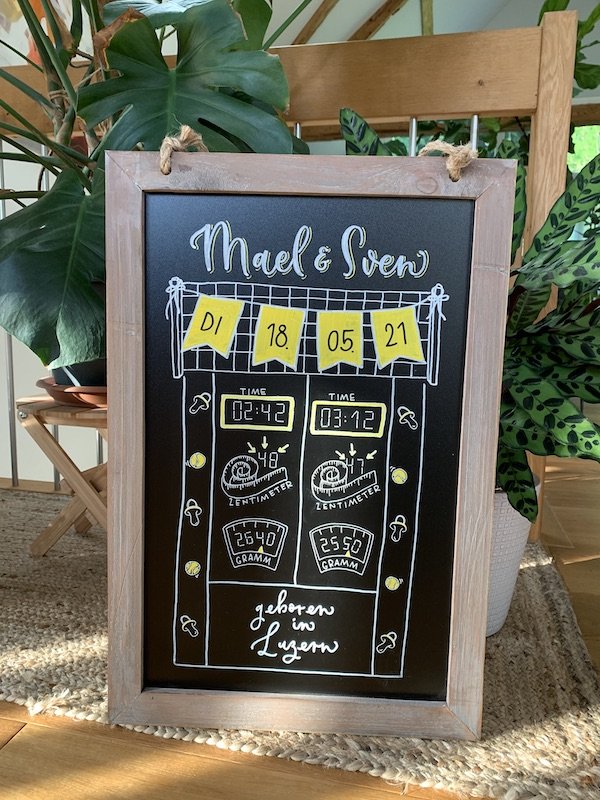 Mael & Sven
DI 18. 05. 21
TIME TIME
02:42 03:12
48 47
ZENTIMETER ZENTIMETER
2640 2550
GRAMM GRAMM
geboren
in
Luzern